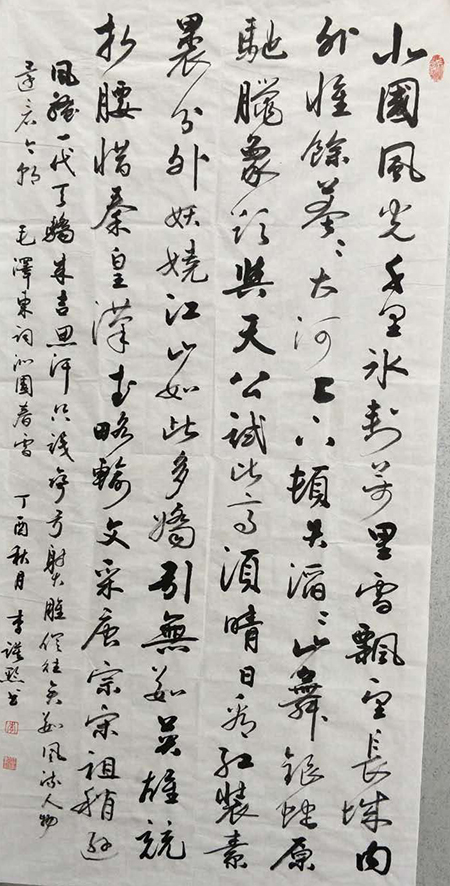 北國風光千里冰封萬里雪飄望長城內
外惟餘莽〻大河上下頓失滔〻山舞銀蛇原
馳臘象欲與天公試比高須晴日看紅裝素
裹分外妖嬈江山如此多嬌引無數英雄競
折腰惜秦皇漢武略輸文采唐宗宋祖稍遜
風騷一代天驕成吉思汗只識彎弓射大雕俱往矣數風流人物
還看今朝 毛澤東詞沁園春雪 丁酉秋月 李书